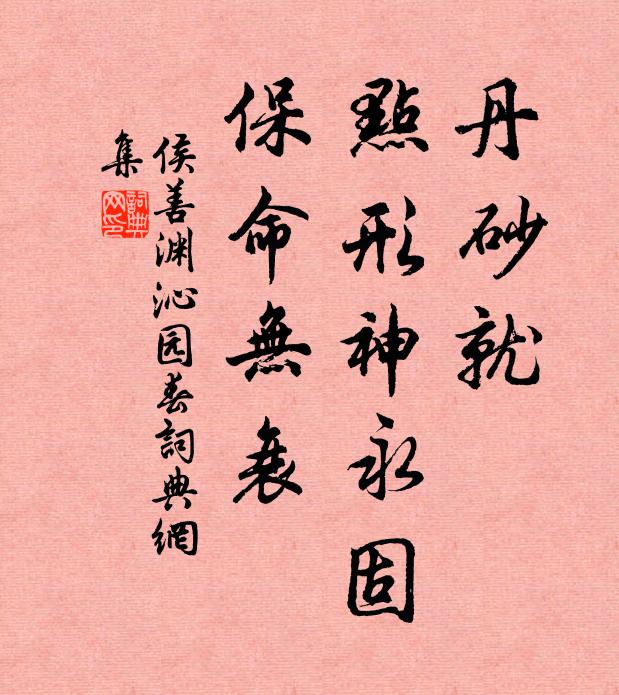 丹砂就
點形神永固
保命無衰
侯善渊沁园春詞典網
集
詞典網印